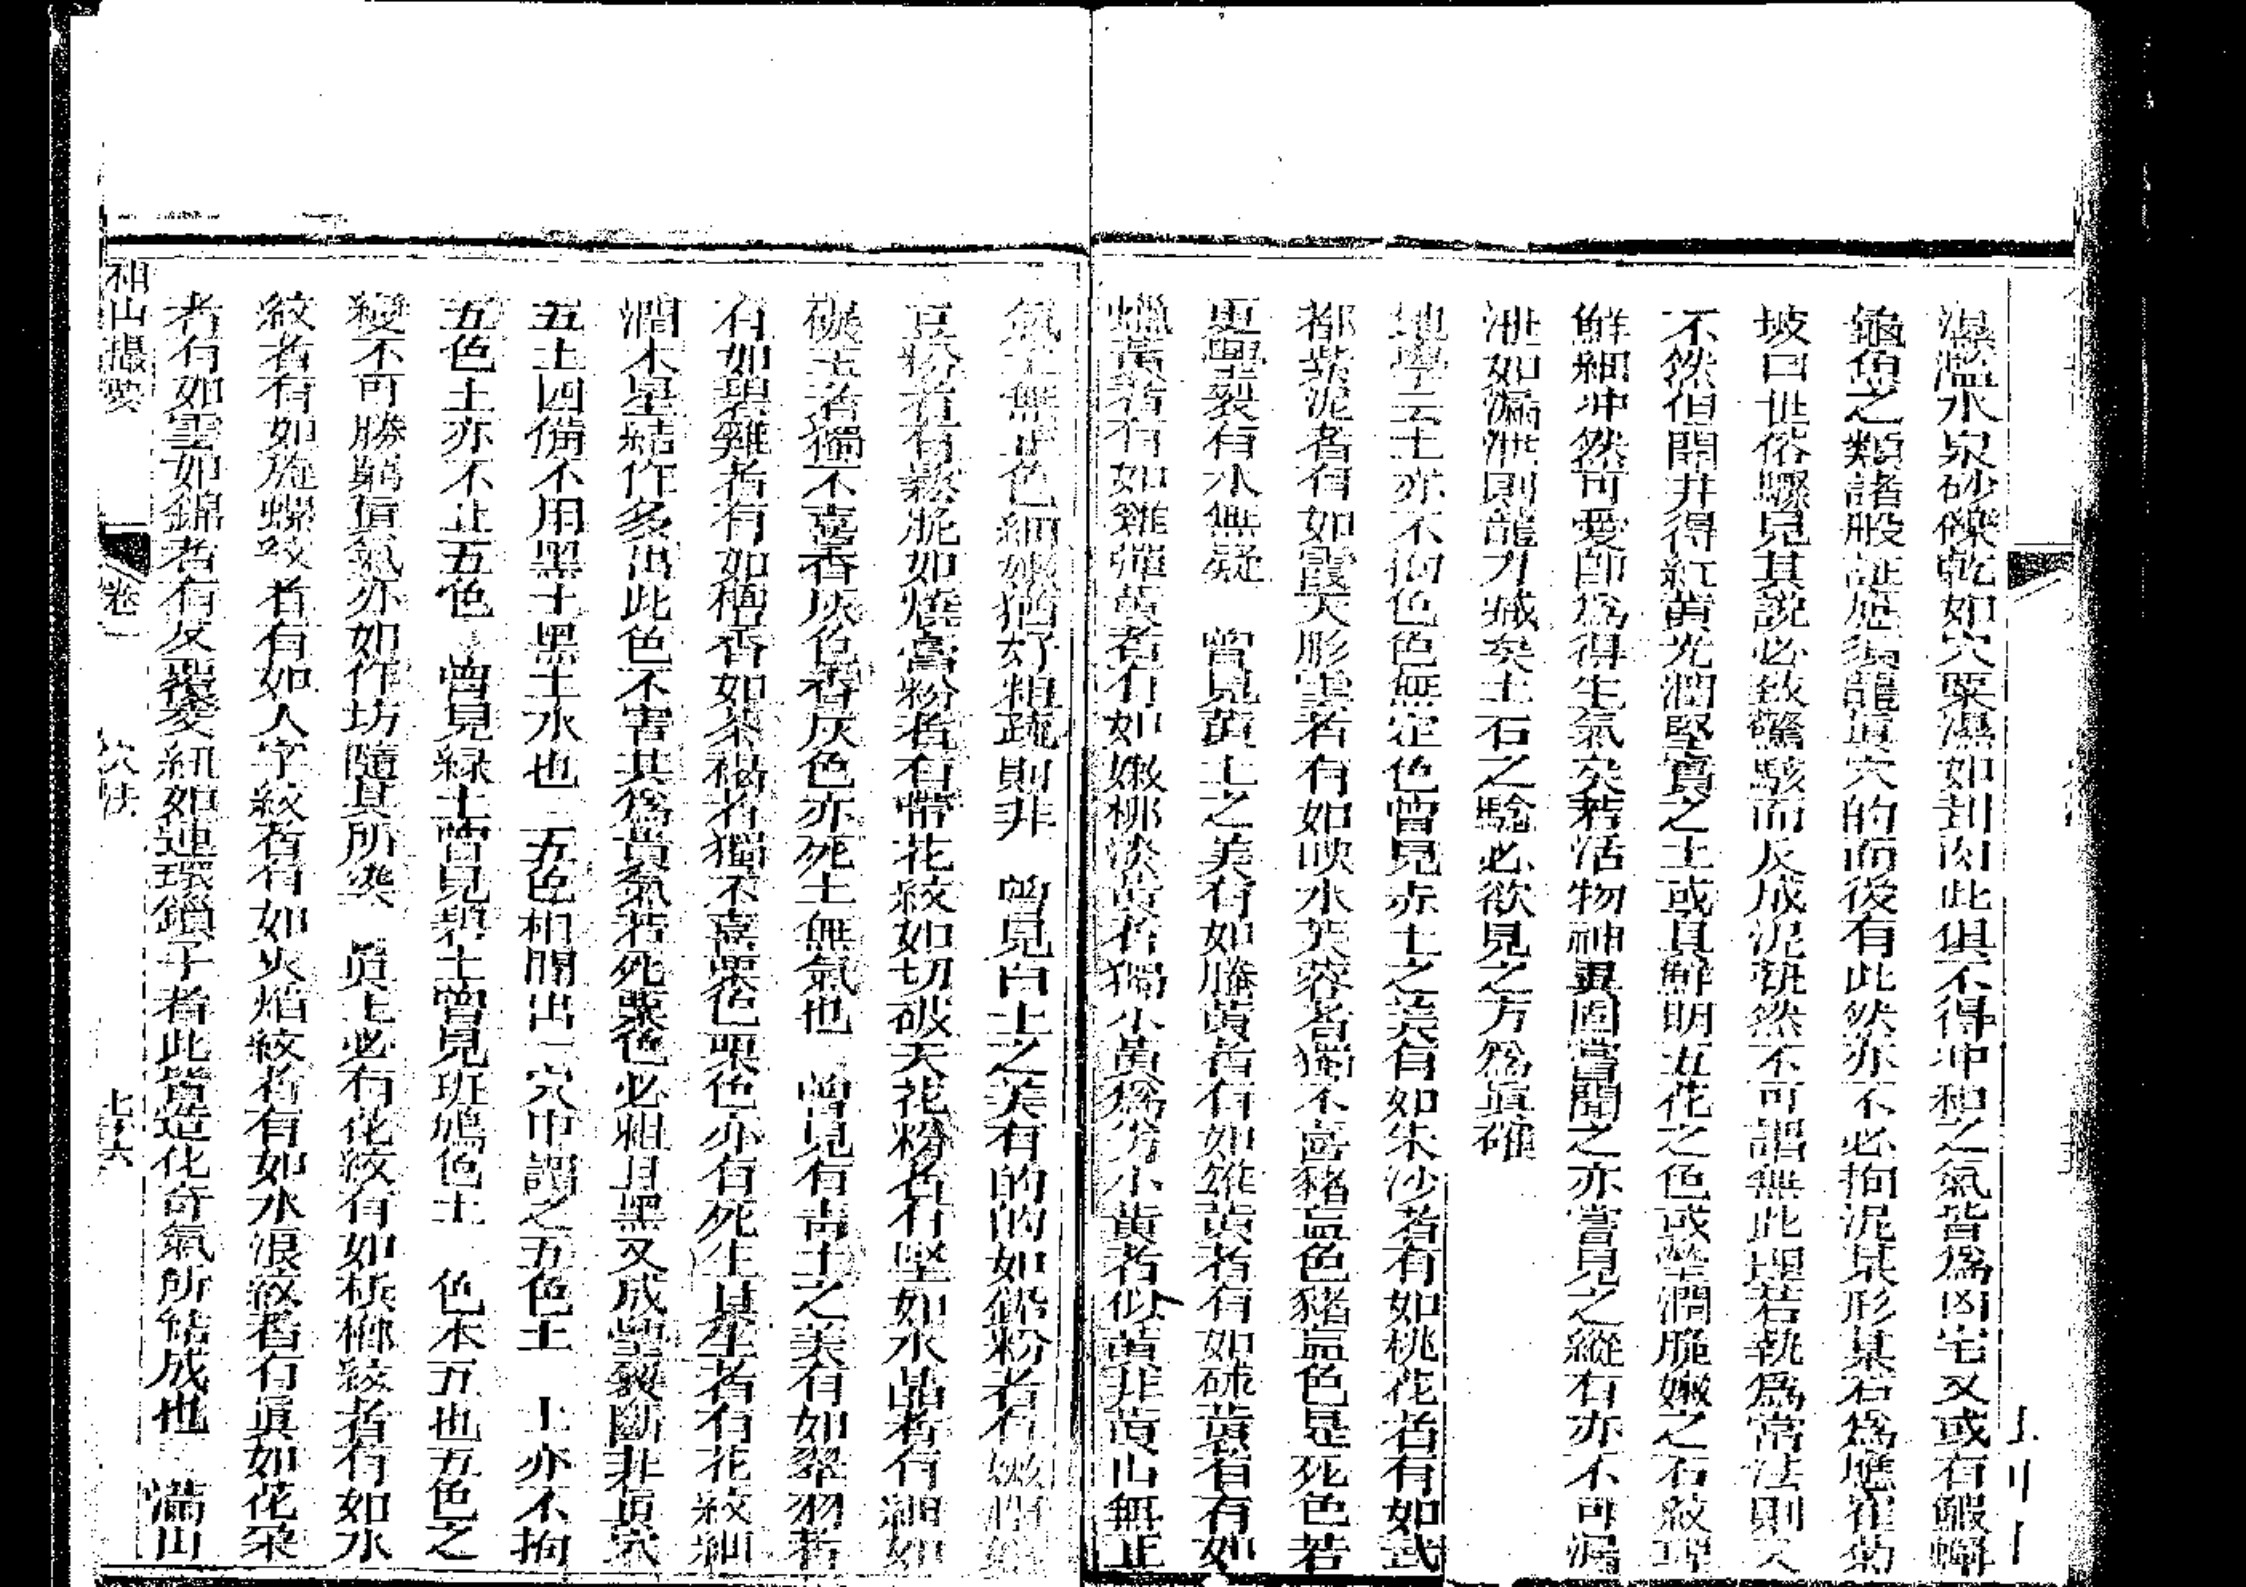 濕濫水泉砂礫乾如穴粟濕如刲肉此俱不得冲和之氣皆為凶宅又或有鰕蠏
龜魚之類諸般証應須龍真穴的而後有此然亦不必拘泥某形某石為應崔菊
坡曰世俗驟見其說必致驚駭而反成泥執然不可謂無此理若執為常法則又
不然但開井得紅黃光潤堅實之土或具鮮明五花之色或堅潤脆嫩之石紋理
鮮細冲然可愛即為得生氣矣若活物神異固嘗聞之亦嘗見之縱有亦不可漏
泄如漏泄則龍力減矣土石之驗必欲見之方為真確
地學云土亦不拘色色無定色曾見赤土之美有如朱沙者有如桃花者有如武
都紫泥者有如霞天彤雲者有如映水芙蓉者獨不喜豬血色豬血色是死色若
更舋裂有水無疑 曾見黃土之美有如籐黃者有如雄黃者有如硫黃者有如
蠟黃者有如雞彈黃者有如嫩柳淡黃者獨小黃為劣小黃者似黃非黃山無正
氣土無正色細嫩猶好粗疏則非 曾見白土之美有的的如鉛粉者有嫩
粉者有鬆脆如燒窰粉者有帶花紋如切破天花粉者有堅如水晶者有細如
玉者獨不喜香灰色香灰色亦死土無氣也 曾見有青土之美有如翠羽者
有如碧雞者有如檀香如茶褐者獨不喜栗色栗色亦有死生其生者有花紋細
潤木星結作多出此色不害其為貴氣若死栗色必粗且黑又成舋裂斷非真穴
五土四備不用黑土黑土水也 五色相間出一穴中謂之五色土 土亦不拘
五色土亦不止五色 曾見緑土曾見碧土曾見班鳩色土 色本五也五色之
變不可勝窮真氣亦如作坊隨其所染 真土必有花紋有如檳榔紋者有如水
紋者有如旋螺紋者有如人字紋者有如火焰紋者有如水浪紋者有真如花朶
者有如雲如錦者有反覆交紐如連環鎖子者此皆造化奇氣所結成也 滿山
山撮要 卷一 穴法 七十六